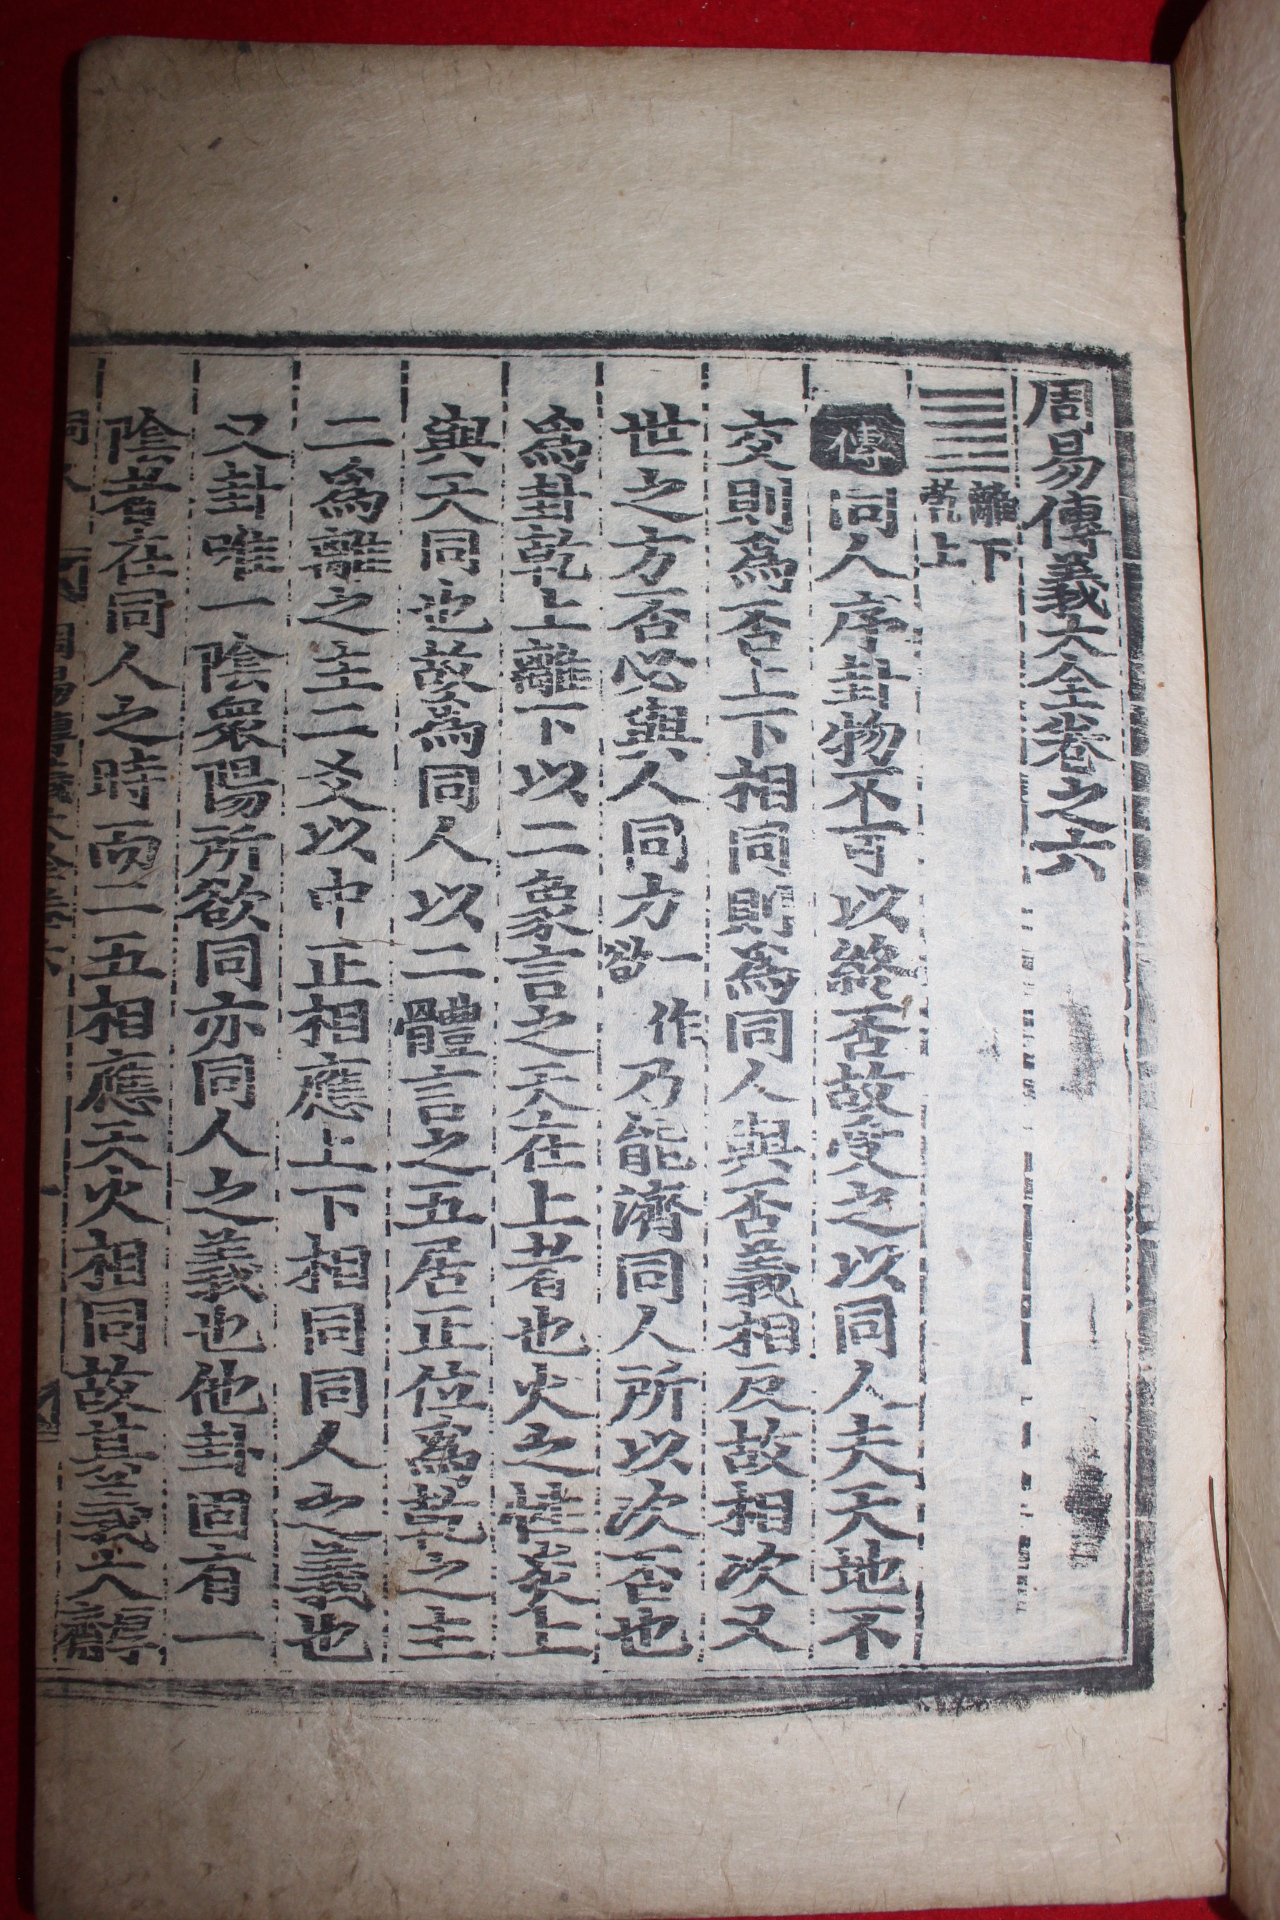 周易傳義大全卷之六
䷌ 離下
乾上
傳 同人序卦物不可以終否故受之以同人夫天地不
交則爲否上下相同則爲同人與否義相反故相次又
世之方否必與人同力一作欲乃能濟同人所以次否也
爲卦乾上離下以二象言之天在上者也火之性炎上
與天同也故爲同人以二體言之五居正位爲乾之主
二爲離之主二爻以中正相應上下相同同人之義也
又卦唯一陰衆陽所欲同亦同人之義也他卦固有一
陰者在同人之時而二五相應天火相同故其義大